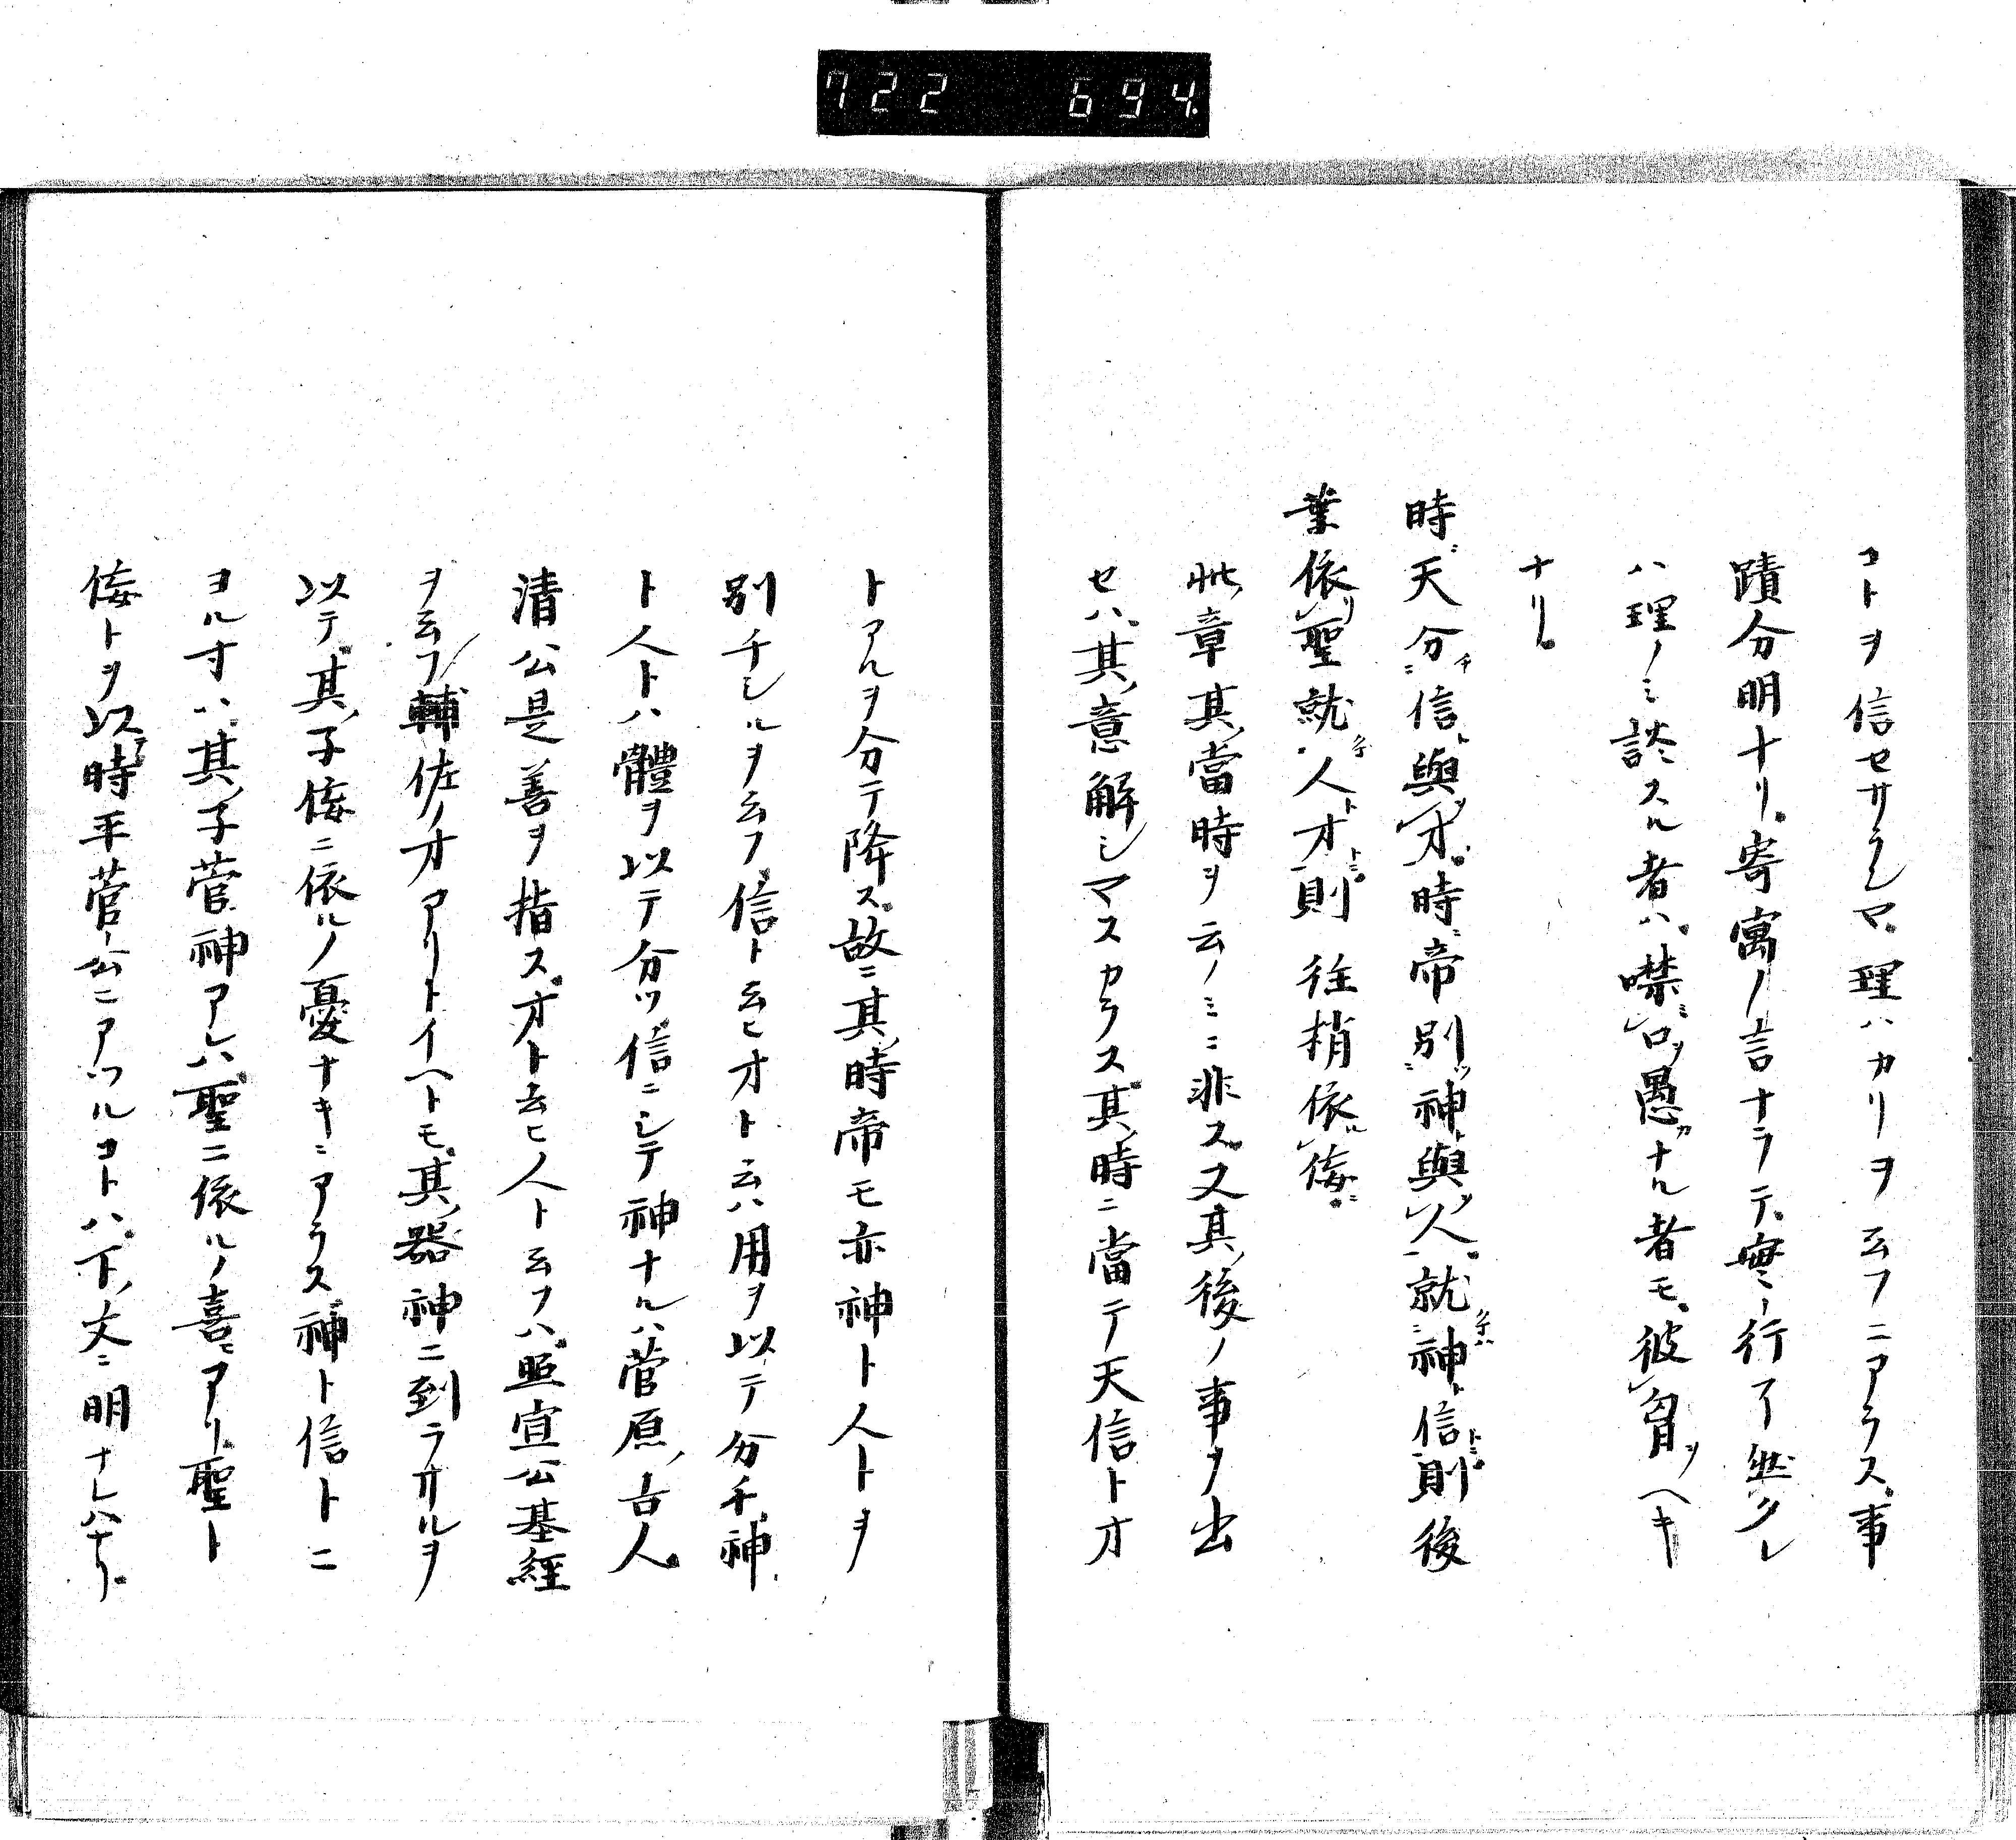 722 694
コトヲ信セサラシマ理ハカリヲ云フニアラス事
蹟分明ナリ寄寓ノ言ナラテ實ノ行了無クレ
ハ理ノミ談スル者ハ噤口愚ナル者モ彼ヘキ
ナリ
時天分信與才時帝別神與人就神信則後
葉依聖就人才則往梢依侫
此章其當時ヲ云ノミニ非ス又其後ノ事ヲ出
セハ其意解シマスカラス其時ニ當テ天信トオ
トアルヲ分テ降ス故ニ其時帝モ亦神ト人トヲ
別チシルヲ云フ信ト云ヒオト云ハ用ヲ以テ分チ神
ト人トハ體ヲ以テ分ツ信ニシテ神ナルハ菅原古人
清公是善ヲ指スオト云ヒ人ト云フハ照宣公基經
ヲ云フ輔佐ノオアリトイヘトモ其器神ニ到ラサルヲ
以テ其子侫ニ依ルノ憂ナキニアラス神ト信トニ
ヨル寸ハ其子菅神アレハ聖ニ依ルノ喜ヒアリ聖ト
侫トヲ以時平菅公ニアツルコトハ下文ニ明ナレハナリ